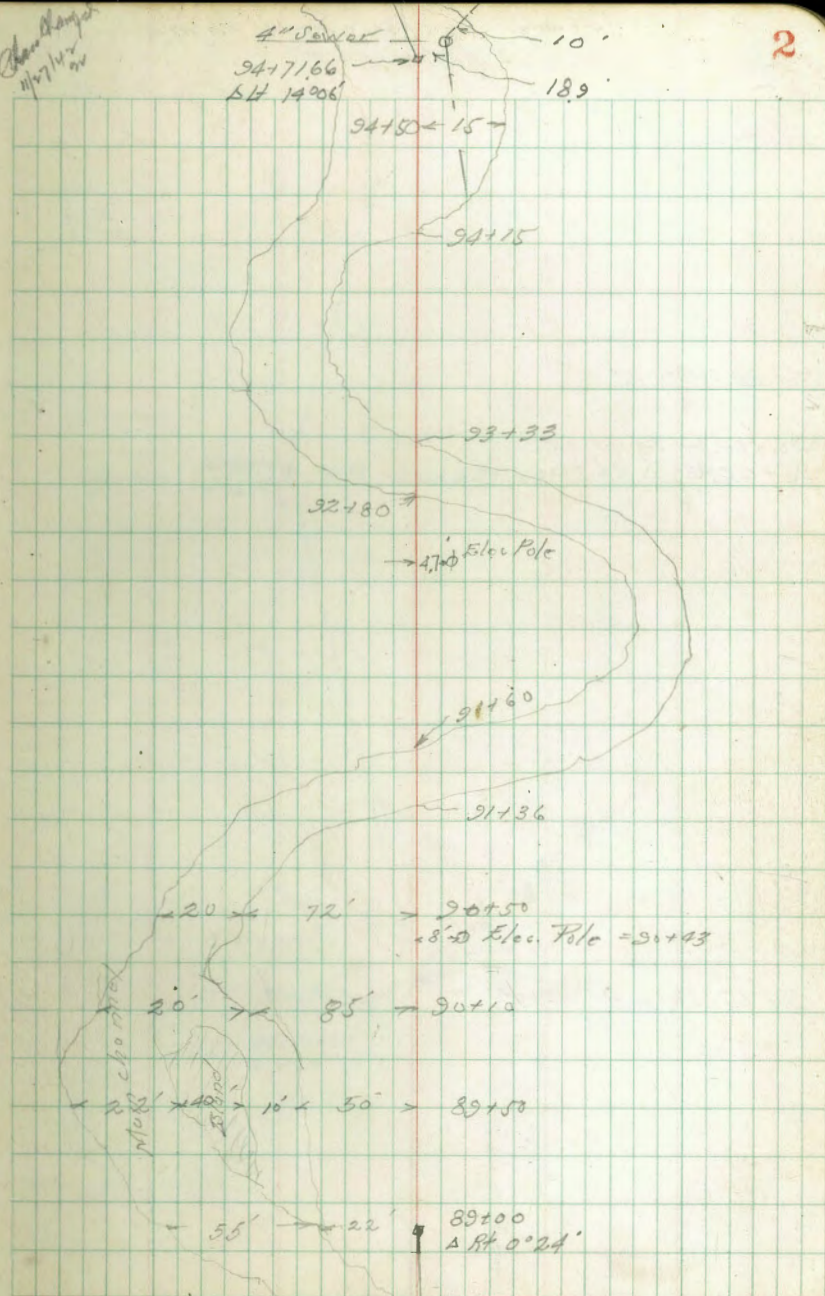 2
11/27/42
4" Sewer
10'
94+71.66
Δ Lt 14°06'
18.9
94+50 15
94+15
93+33
92+80
4.7 Elec Pole
91+60
91+36
20 72' 90+50
8' Elec. Pole = 90+43
20' 85' 90+10
Main channel
Island
22' 40' 10' 50' 89+50
55' 22' 89+00
Δ Rt 0°24'